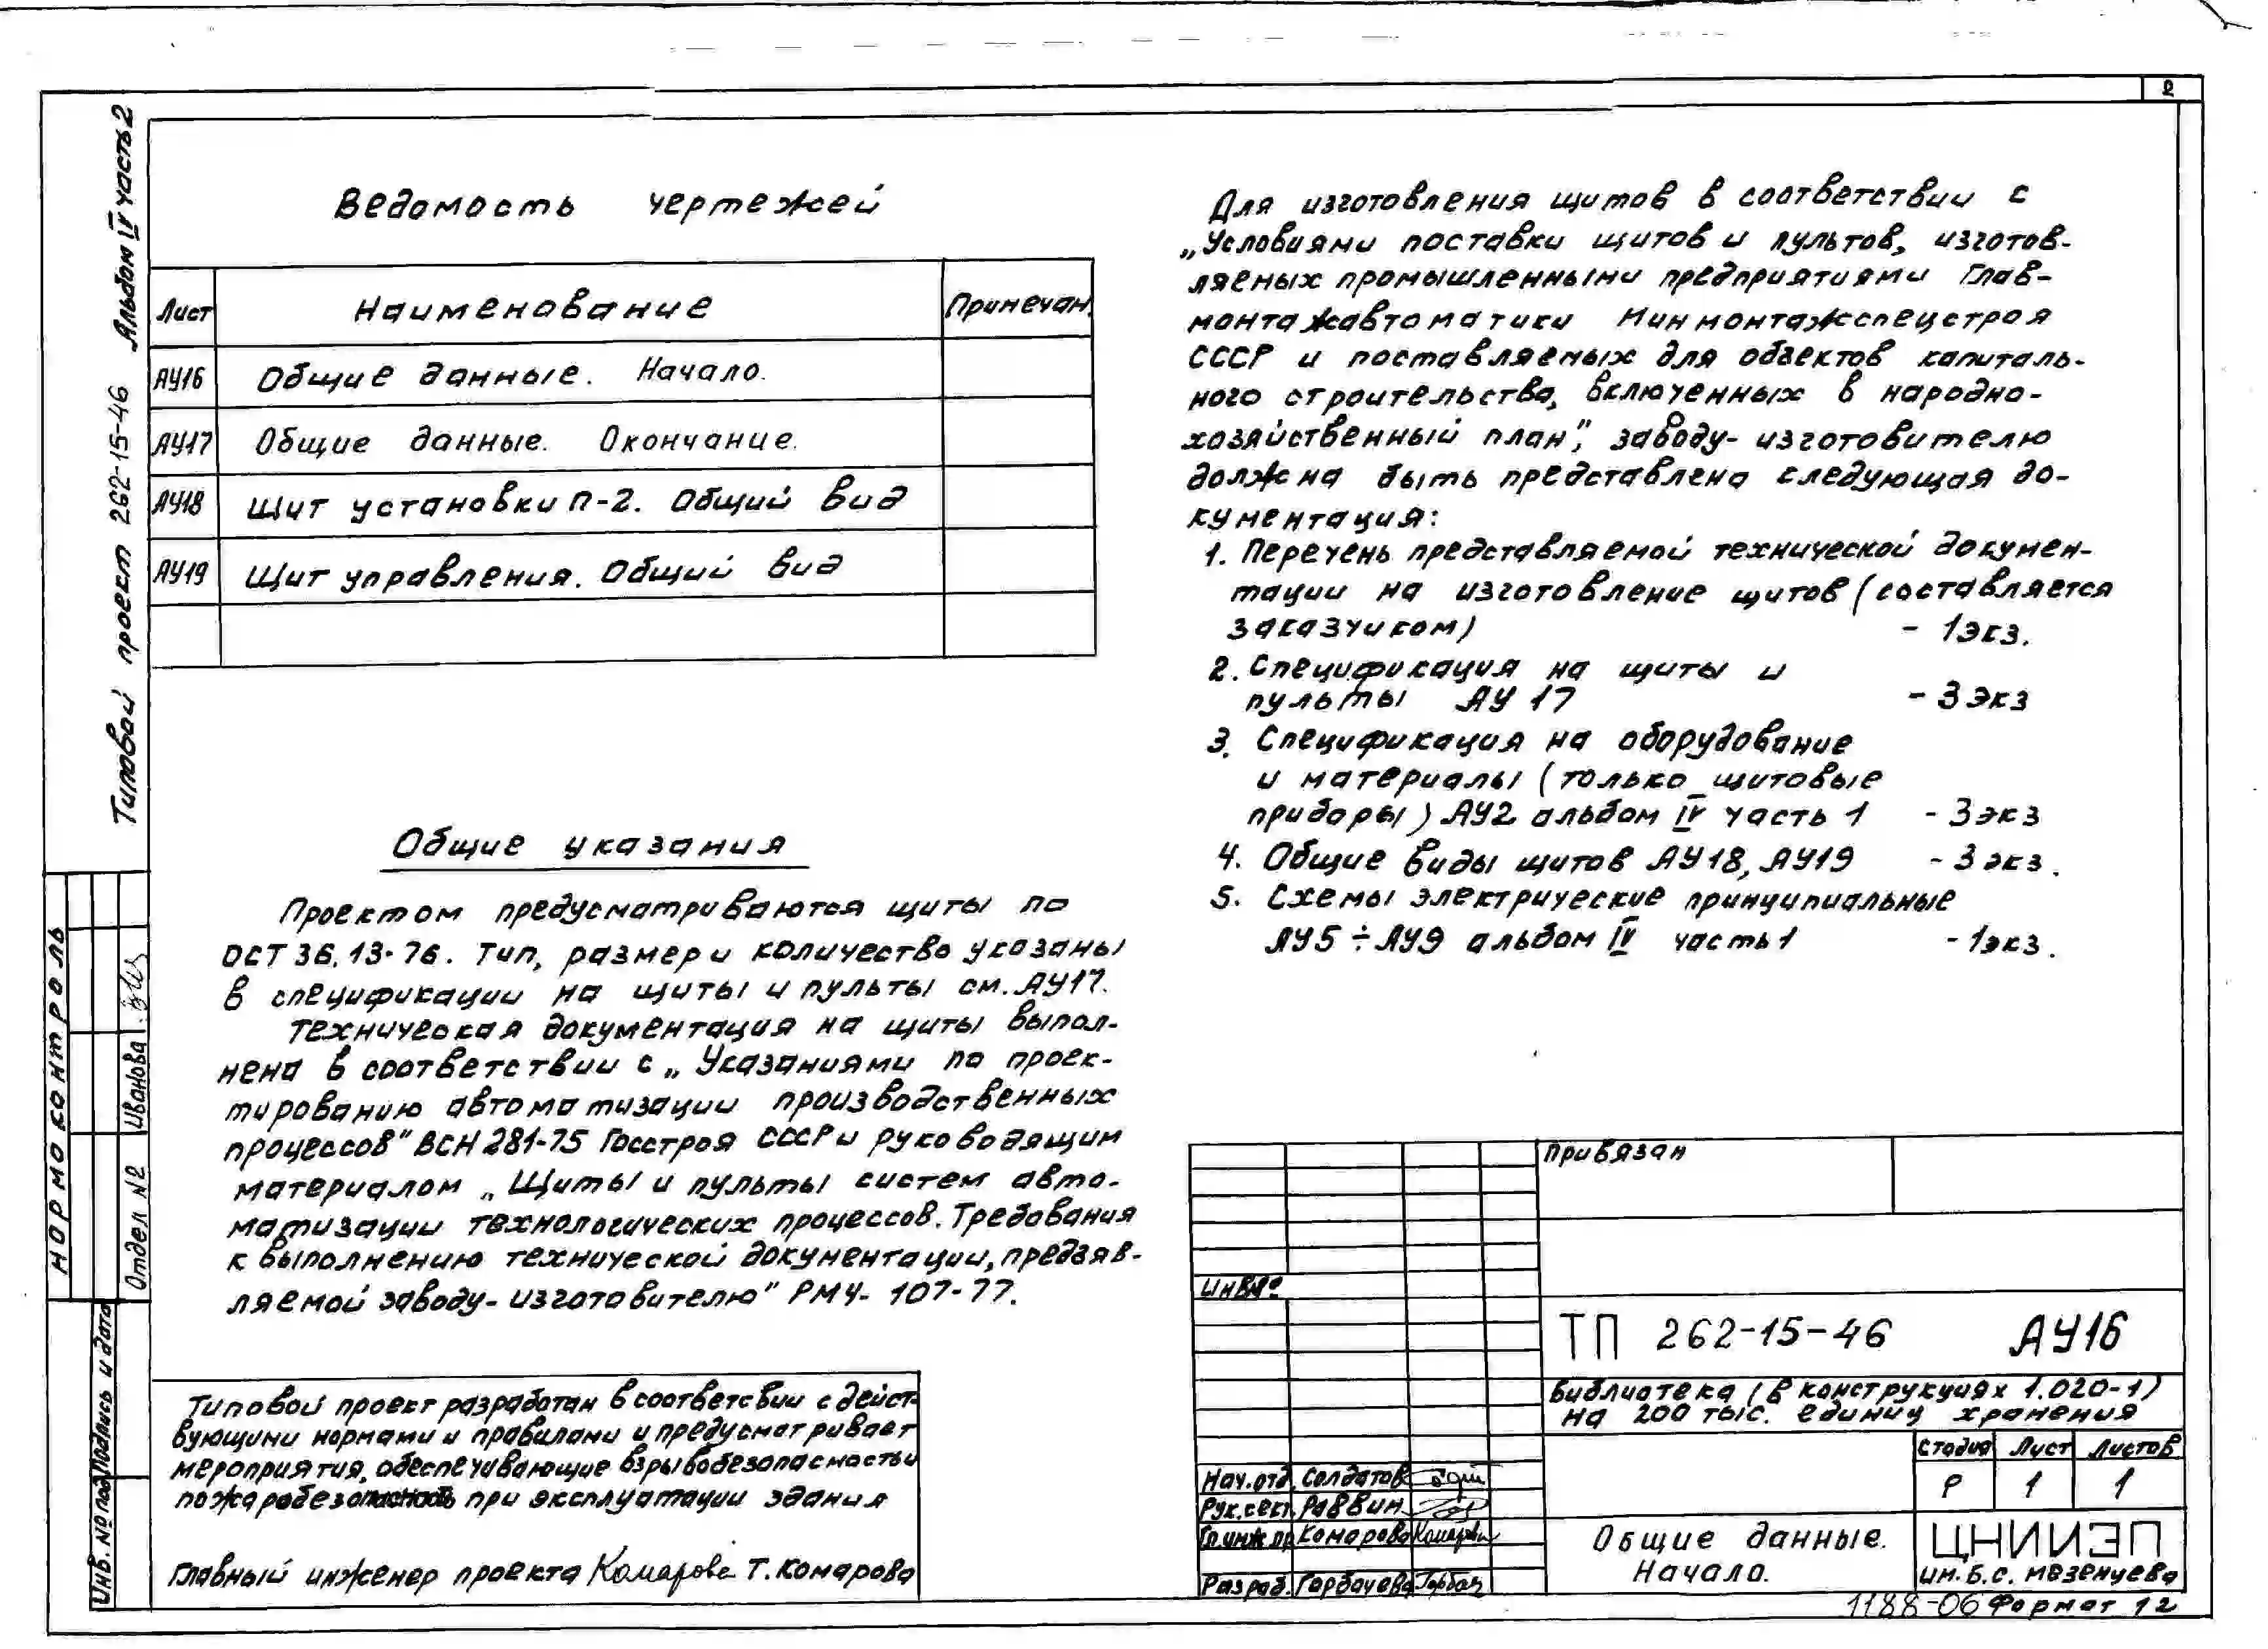 2
Типовой проект 262-15-46 Альбом IV часть 2
Ведомость чертежей
Лист Наименование Примечан.
АУ16 Общие данные. Начало.
АУ17 Общие данные. Окончание.
АУ18 Щит установки П-2. Общий вид
АУ19 Щит управления. Общий вид
Общие указания
Проектом предусматриваются щиты по
ОСТ 36.13-76. Тип, размер и количество указаны
в спецификации на щиты и пульты см. АУ17.
Техническая документация на щиты выпол-
нена в соответствии с „Указаниями по проек-
тированию автоматизации производственных
процессов" ВСН 281-75 Госстроя СССР и руководящим
материалом „Щиты и пульты систем авто-
матизации технологических процессов. Требования
к выполнению технической документации, предъяв-
ляемой заводу-изготовителю" РМ4-107-77.
Типовой проект разработан в соответсвии с дейст-
вующими нормами и правилами и предусматривает
мероприятия, обеспечивающие взрывобезопасность и
пожаробезопасность при эксплуатации здания
Главный инженер проекта Комарова Т. Комарова
Для изготовления щитов в соответствии с
„Условиями поставки щитов и пультов, изготов-
ляемых промышленными предприятиями Глав-
монтажавтоматики Минмонтажспецстроя
СССР и поставляемых для объектов капиталь-
ного строительства, включенных в народно-
хозяйственный план", заводу-изготовителю
должна быть представлена следующая до-
кументация:
1. Перечень представляемой технической докумен-
тации на изготовление щитов (составляется
заказчиком) - 1экз.
2. Спецификация на щиты и
пульты АУ 17 - 3 экз
3. Спецификация на оборудование
и материалы (только щитовые
приборы) АУ2 альбом IV часть 1 - 3экз
4. Общие виды щитов АУ18, АУ19 - 3 экз.
5. Схемы электрические принципиальные
АУ5 ÷ АУ9 альбом IV часть 1 - 1экз.
Нормоконтроль
Отдел №2 Иванова
Инв. № подл. Подпись и дата
Привязан
Инв.№
ТП 262-15-46 АУ16
Библиотека (в конструкциях 1.020-1)
на 200 тыс. единиц хранения
Стадия Лист Листов
Р 1 1
Нач.отд. Солдатов
Рук.сект. Раввин
Гл.инж.пр. Комарова Комарова
Разраб. Горбачева Горбач
Общие данные.
Начало.
ЦНИИЭП
им. Б.С. Мезенцева
1188-06 Формат 12